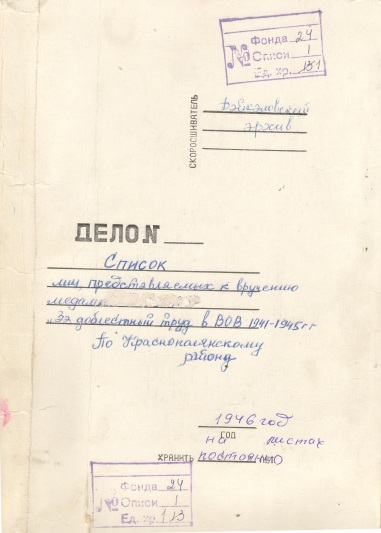 Фонда 24
№ Описи 1
Ед. хр. 151
СКОРОСШИВАТЕЛЬ
архив
ДЕЛО №
Список
лиц, представляемых к вручению
медали
"За доблестный труд в ВОВ 1941-1945 гг
По Краснополянскому
району
1946 год
ГОД
на листах
ХРАНИТЬ постоянно
Фонда 24
№ Описи 1
Ед. хр. 113